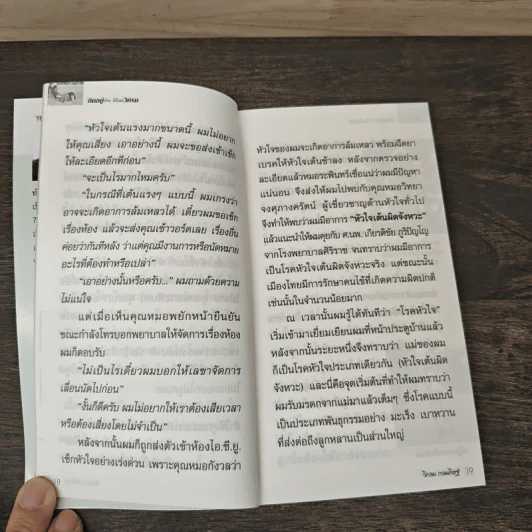 "หัวใจเต้นแรงมากขนาดนี้ ผมไม่อยาก
ให้คุณเสี่ยง เอาอย่างนี้ ผมจะขอส่งเข้าเช็ก
ให้ละเอียดอีกทีก่อน"
"จะเป็นไรมากไหมครับ"
"ในกรณีที่เต้นแรงๆ แบบนี้ ผมเกรงว่า
อาจจะเกิดอาการล้มเหลวได้ เดี๋ยวผมขอเช็ก
เรื่องห้อง แล้วจะส่งคุณเข้าวอร์ดเลย เรื่องอื่น
ค่อยว่ากันทีหลัง ว่าแต่คุณมีงานการหรือนัดหมาย
อะไรที่ต้องทำหรือเปล่า"
"เอาอย่างนั้นหรือครับ..." ผมถามด้วยความ
ไม่แน่ใจ
แต่เมื่อเห็นคุณหมอพยักหน้ายืนยัน
ขณะกำลังโทรบอกพยาบาลให้จัดการเรื่องห้อง
ผมก็ตอบรับ
"ไม่เป็นไรเดี๋ยวผมบอกให้เลขาจัดการ
เลื่อนนัดไปก่อน"
"งั้นก็ดีครับ ผมไม่อยากให้เราต้องเสียเวลา
หรือต้องเสี่ยงโดยไม่จำเป็น"
หลังจากนั้นผมก็ถูกส่งตัวเข้าห้องไอ.ซี.ยู.
เช็กหัวใจอย่างเร่งด่วน เพราะคุณหมอกังวลว่า
8
หัวใจของผมจะเกิดอาการล้มเหลว พร้อมฉีดยา
เบรคให้หัวใจเต้นช้าลง หลังจากตรวจอย่าง
ละเอียดแล้วหมอระพินทร์เชื่อแน่ว่าผมมีปัญหา
แน่นอน จึงส่งให้ผมไปพบกับคุณหมอวิทยา
จงศุภางค์รัตน์ ผู้เชี่ยวชาญด้านหัวใจทั่วไป
จึงทำให้พบว่าผมมีอาการ "หัวใจเต้นผิดจังหวะ"
แล้วแนะนำให้ผมคุยกับ ศ.นพ. เกียรติชัย ภูริปัญโญ
จากโรงพยาบาลศิริราช จนทราบว่าผมมีอาการ
เป็นโรคหัวใจเต้นผิดจังหวะจริง แต่ขณะนั้น
เมืองไทยมีการรักษาคนไข้ที่เกิดความผิดปกติ
เช่นนั้นในจำนวนน้อยมาก
ณ เวลานั้นผมรู้ได้ทันทีว่า "โรคหัวใจ"
เริ่มเข้ามาเยี่ยมเยียนผมที่หน้าประตูบ้านแล้ว
หลังจากนั้นระยะหนึ่งจึงทราบว่า แม่ของผม
ก็เป็นโรคหัวใจประเภทเดียวกัน (หัวใจเต้นผิด
จังหวะ) และนี่คือจุดเริ่มต้นที่ทำให้ผมทราบว่า
ผมรับมรดกจากแม่มาแล้วเต็มๆ ซึ่งโรคแบบนี้
เป็นประเภทพันธุกรรมอย่าง มะเร็ง เบาหวาน
ที่ส่งต่อถึงลูกหลานเป็นส่วนใหญ่
วิกรม กรมดิษฐ์ 19